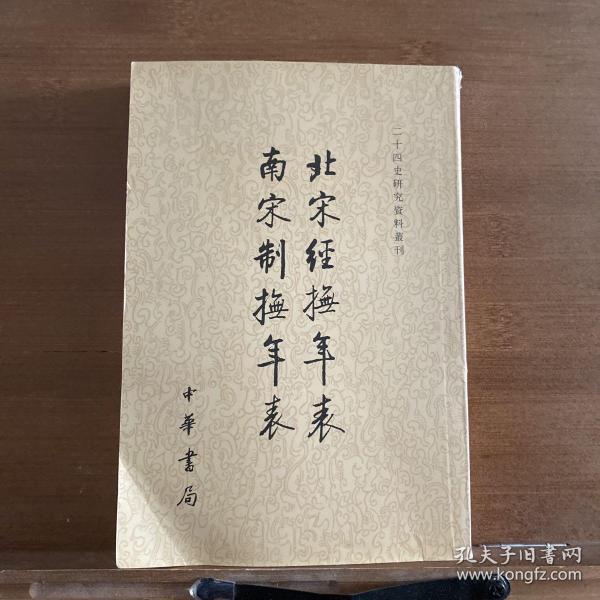 二十四史研究資料叢刊
北宋經撫年表
南宋制撫年表
中華書局
孔夫子旧书网
www.kongfz.com